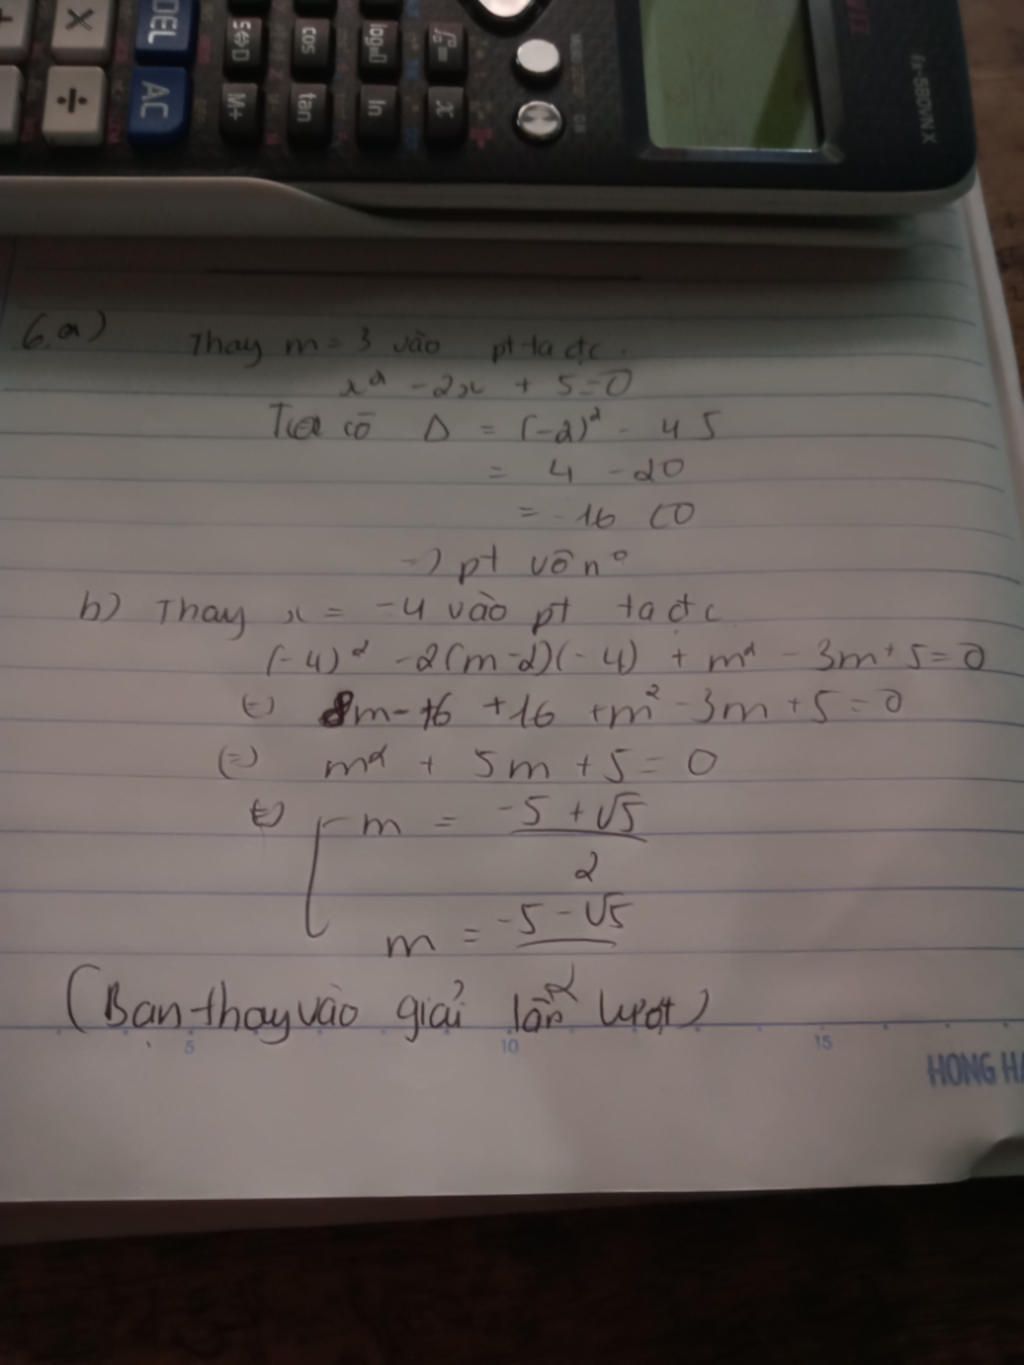 DEL
AC
S⇔D
M+
cos
tan
ln
x
fx-580VN X
6.a) Thay m = 3 vào pt ta đc.
x² - 2x + 5 = 0
Ta có Δ = (-2)² - 4 5
= 4 - 20
= -16 < 0
=> pt vô n°
b) Thay x = -4 vào pt ta đc
(-4)² - 2(m-2)(-4) + m² - 3m + 5 = 0
(=) 8m - 16 + 16 + m² - 3m + 5 = 0
(=) m² + 5m + 5 = 0
(=) [ m = (-5 + √5) / 2
m = (-5 - √5) / 2
(Bạn thay vào giải lần lượt)
5 10 15
HONG HA